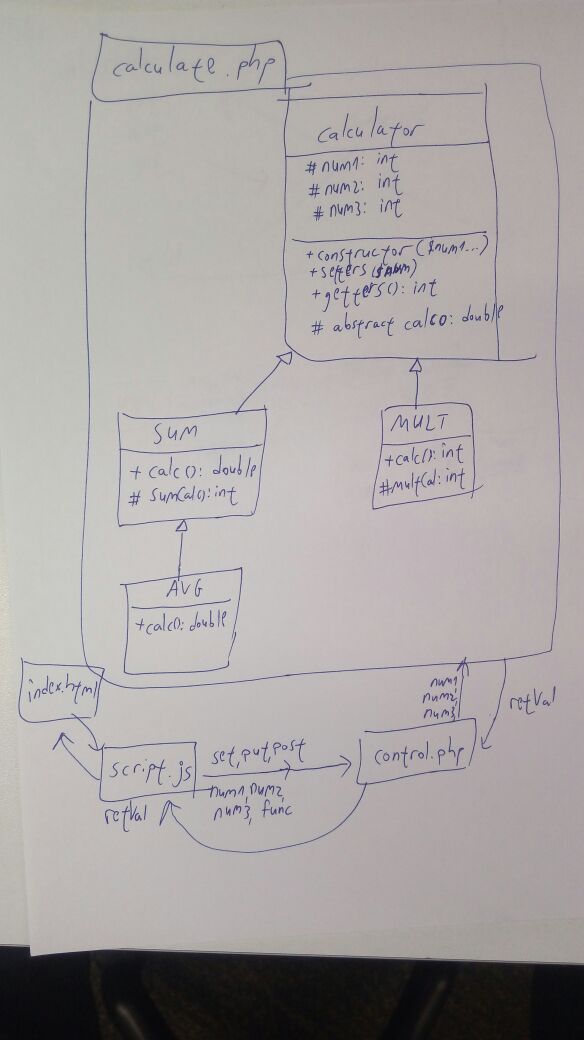 calculate.php
calculator
# num1: int
# num2: int
# num3: int
+constructor($num1...)
+setters($num)
+getters(): int
# abstract calc(): double
SUM
+ calc(): double
# SumCalc():int
MULT
+calc(): int
#multCal: int
AVG
+calc(): double
index.html
num1
num2,
num3,
retVal
script.js
set,put,post
control.php
num1,num2,
num3, func
retVal